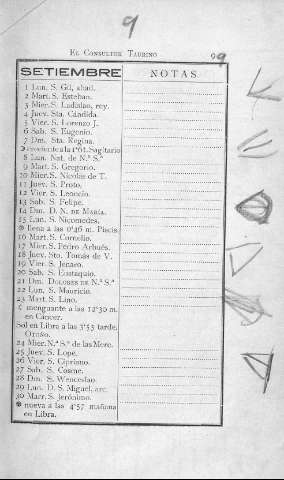 9
EL CONSULTOR TAURINO 99
SETIEMBRE NOTAS
1 Lun. S. Gil, abad.
2 Mart. S. Esteban.
3 Mier. S. Ladislao, rey.
4 Juev. Sta. Cándida.
5 Vier. S. Lorenzo J.
6 Sab. S. Eugenio.
7 Dm. Sta. Regina.
creciente a la 1'61. Sagitario
8 Lun. Nat. de N.ª S.ª
9 Mart. S. Gregorio.
10 Mier. S. Nicolas de T.
11 Juev. S. Proto.
12 Vier. S. Leoncio.
13 Sab. S. Felipe.
14 Dm. D. N. DE MARÍA.
15 Lun. S. Nicomedes.
llena a las 6'46 m. Piscis.
16 Mart. S. Cornelio.
17 Mier. S. Pedro Arbués.
18 Juev. Sto. Tomás de V.
19 Vier. S. Jenaro.
20 Sab. S. Eustaquio.
21 Dm. DOLORES DE N.ª S.ª
22 Lun. S. Mauricio.
23 Mart. S. Lino.
menguante a las 12'30 m.
en Cáncer.
Sol en Libra a las 3'53 tarde.
OTOÑO.
24 Mier. N.ª S.ª de las Merc.
25 Juev. S. Lope.
26 Vier. S. Cipriano.
27 Sab. S. Cosme.
28 Dm. S. Wenceslao.
29 Lun. D. S. Miguel, arc.
30 Mart. S. Jerónimo.
nueva a las 4'57 mañana
en Libra.